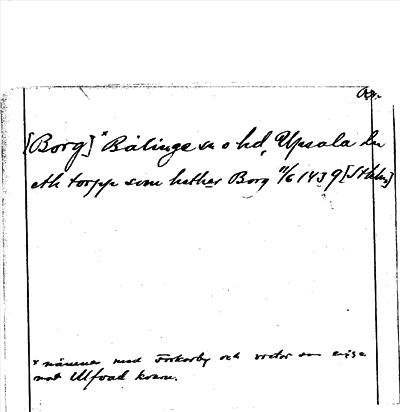 [Borg] * Bälinge sn o hd, Upsala län
eth torpp som hether Borg 11/6 1439 [Sthlm]
* nämnes med Forkarby och
not Ulfvad kvarn.